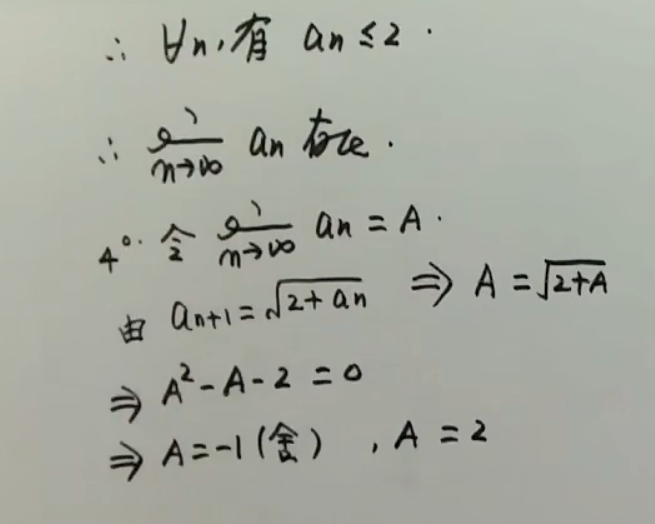 ∴ ∀n,有 an ≤ 2.
∴ lim n→∞ an 存在.
4°. 令 lim n→∞ an = A.
由 an+1 = √(2+an) ⇒ A = √(2+A)
⇒ A² - A - 2 = 0
⇒ A = -1 (舍) , A = 2